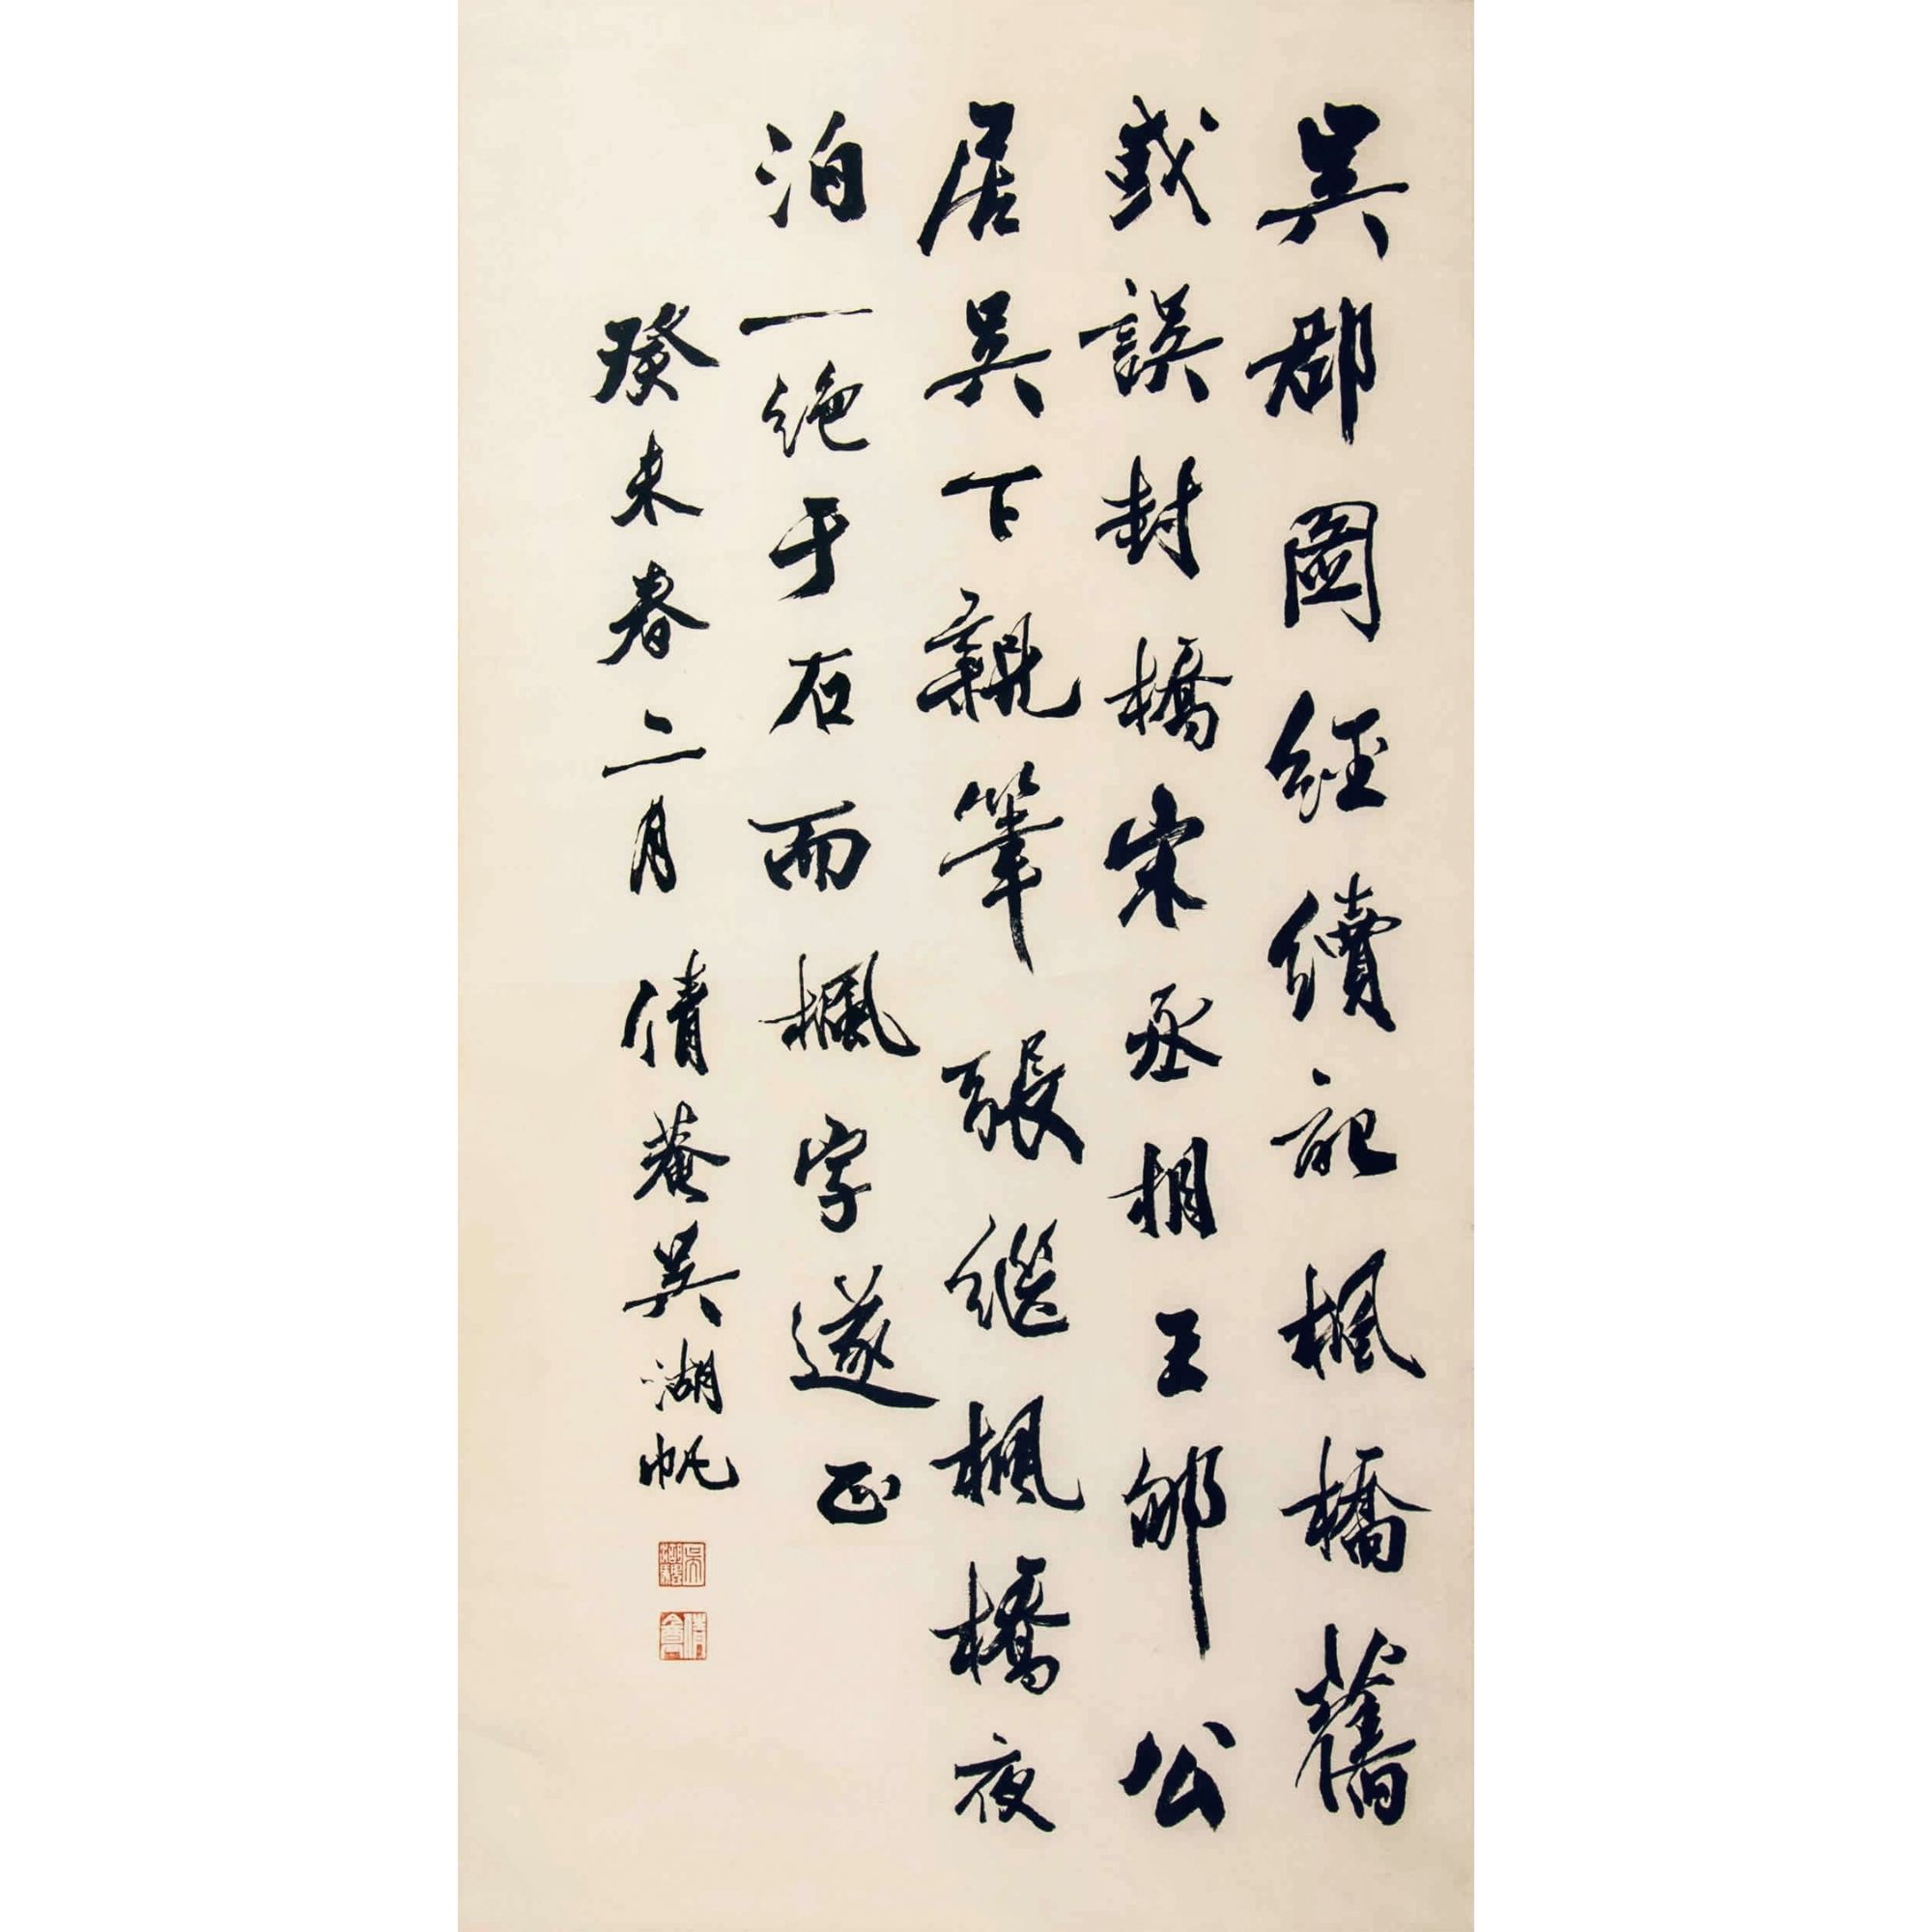 吳郡圖經續記楓橋舊
或誤封橋宋丞相王郇公
居吳下親筆張繼楓橋夜
泊一絕于石而楓字遂正
癸未春二月倩菴吳湖帆
吳湖颿
倩盦